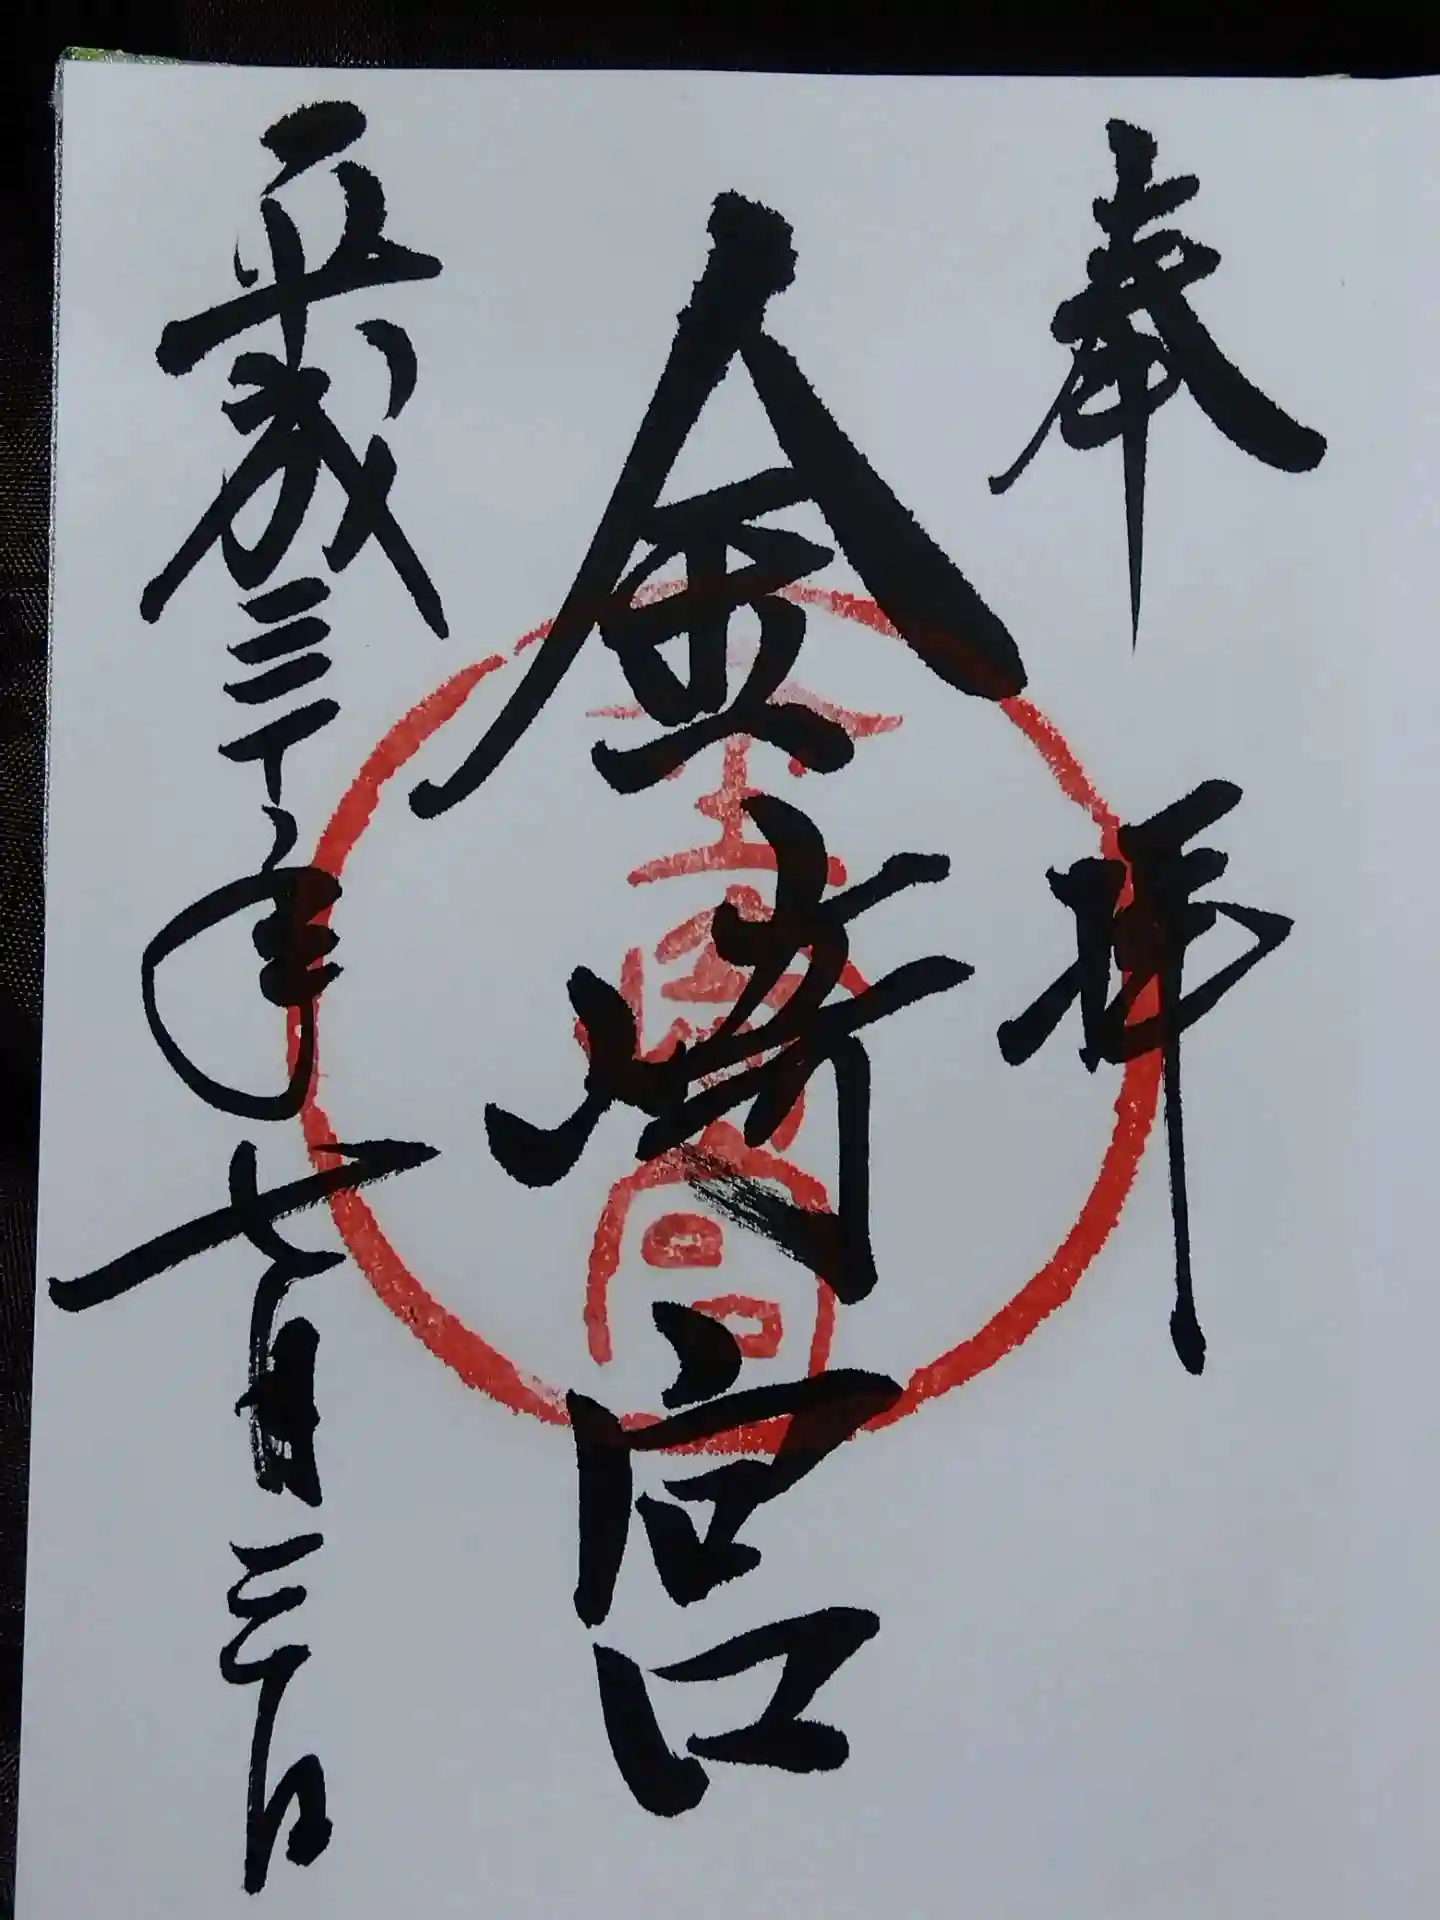 奉拝
金崎宮
金崎宮
平成三十年七月三十日